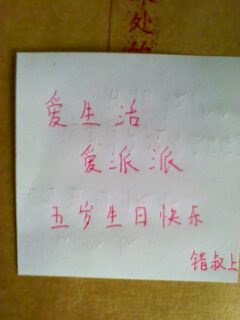 处的
爱生活
爱派派
五岁生日快乐
错叔上